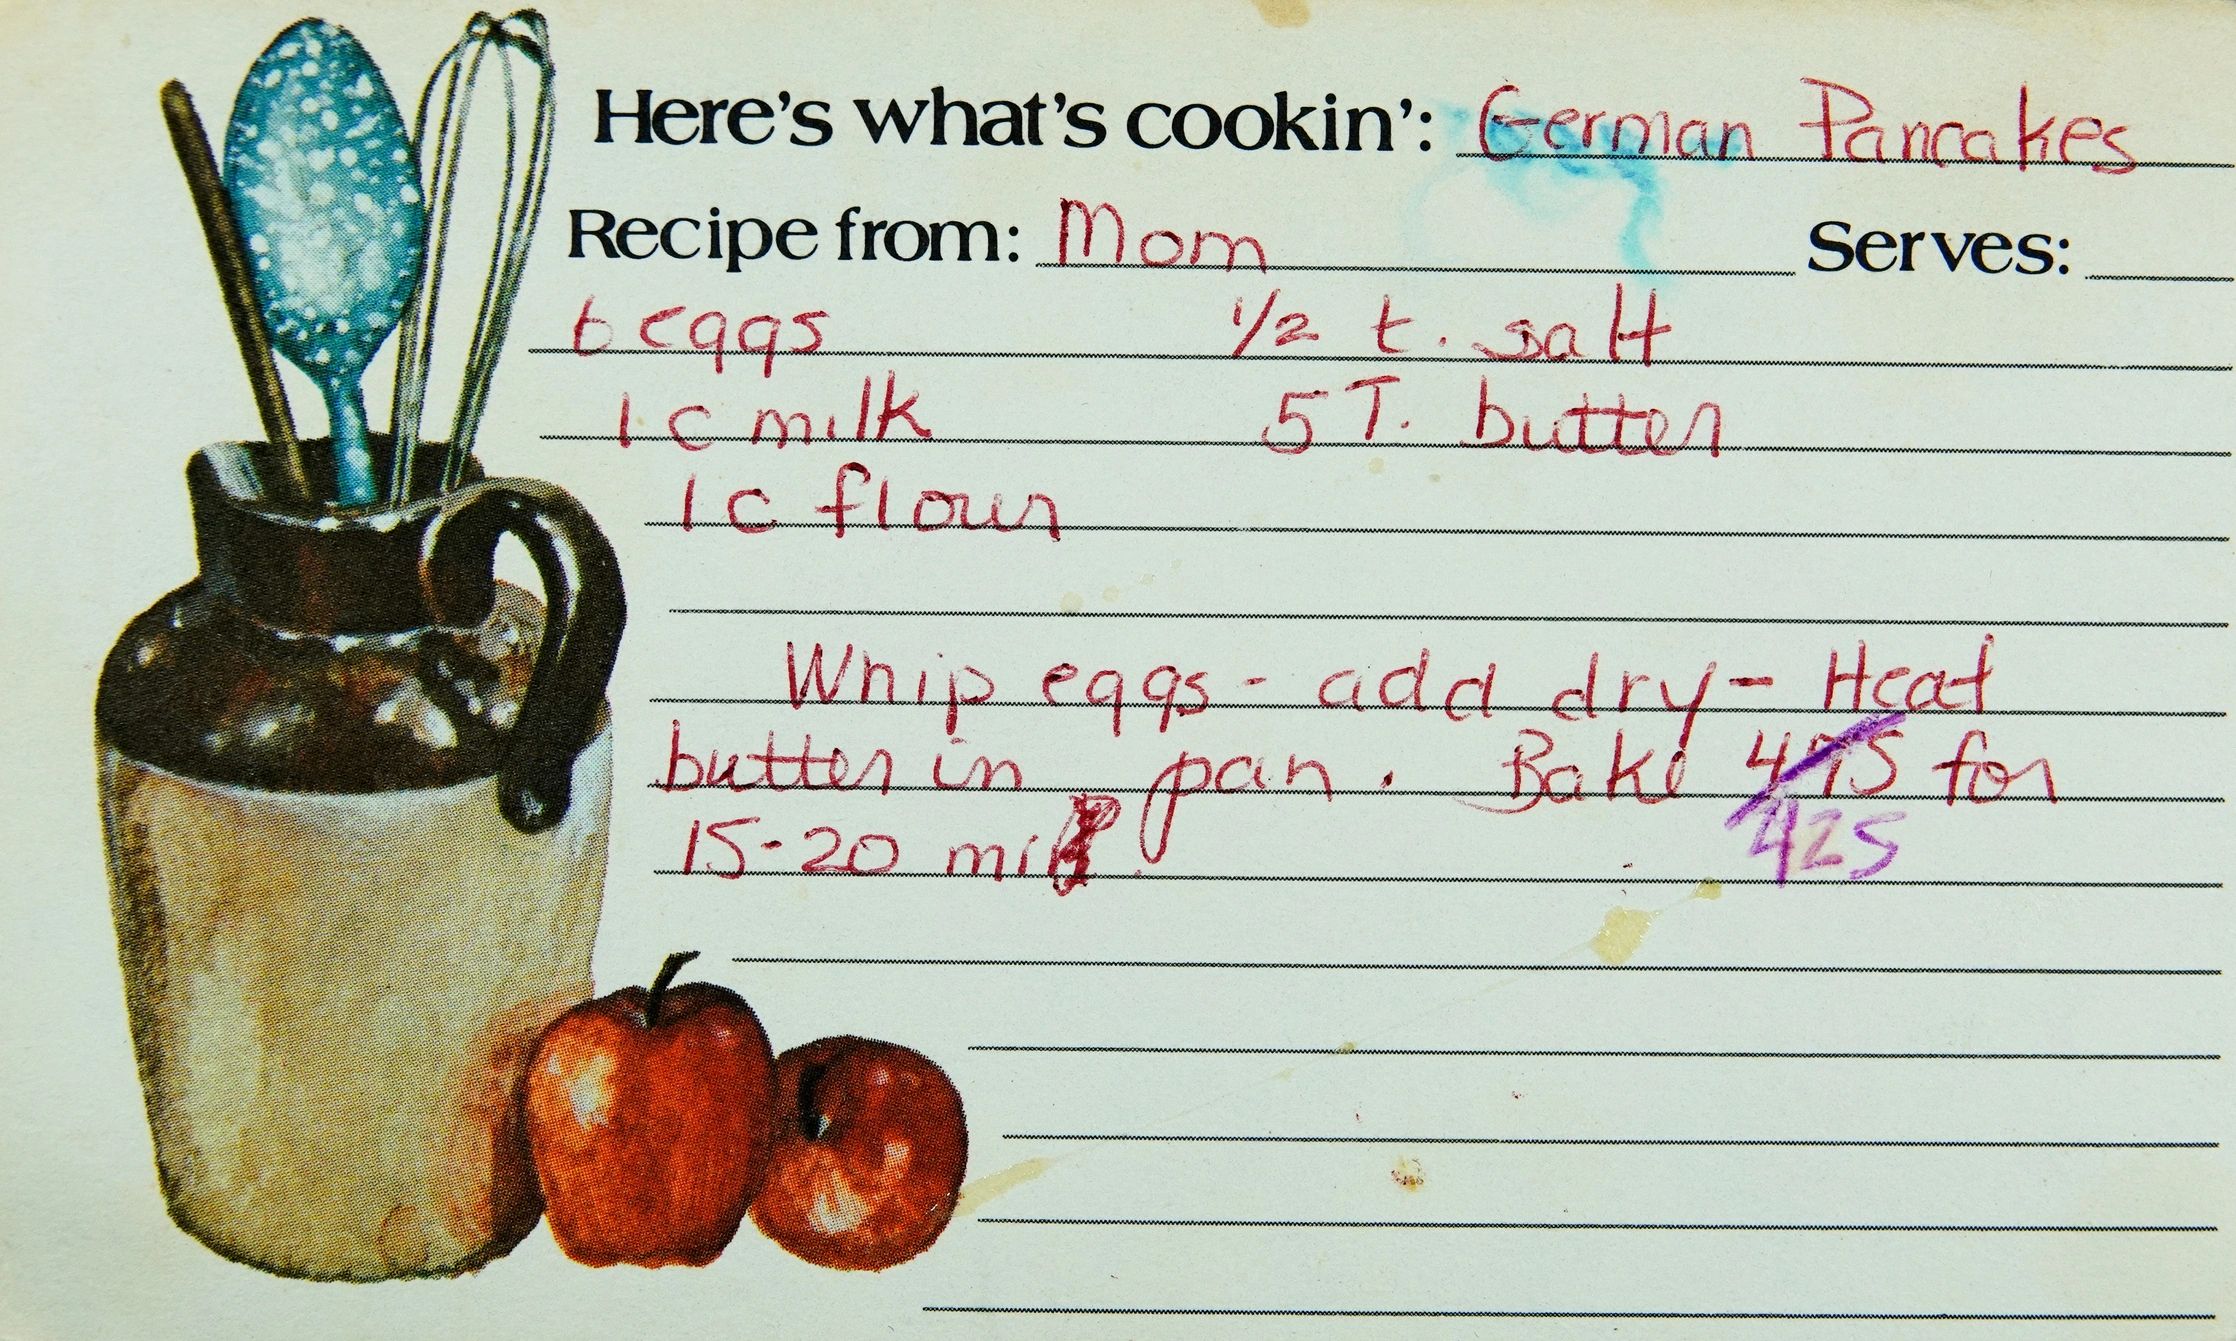 Here's what's cookin': German Pancakes
Recipe from: Mom Serves:
6 eggs 1/2 t. salt
1 c milk 5 T. butter
1 c flour
Whip eggs - add dry - Heat
butter in pan. Bake 475 for
425
15-20 min.